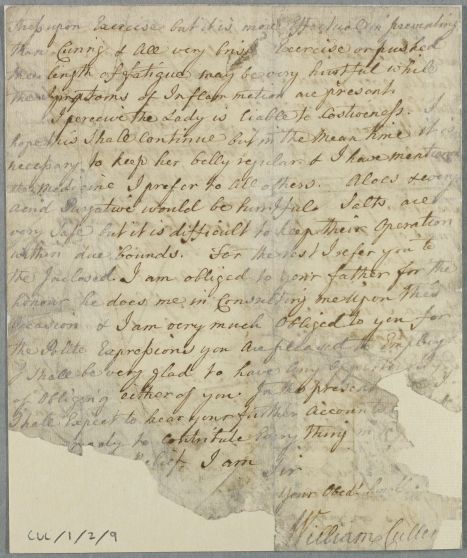 upon Exercise but it is more Effectual in preventing
than Curing & All very brisk Exercise or pushed
the length of fatigue may be very hurtful while
the Symptoms of Inflammation are present
I perceive the Lady is liable to Costiveness. I
hope this Shall Continue but in the mean time it is
necessary to keep her belly regular & I have mentioned
the Medicine I prefer to All others. Aloes & every
acrid Purgative would be hurtful. Salts are
very Safe but it is difficult to keep their Operation
within due bounds. For the rest I refer you to
the Inclosed. I am obliged to your father for the
honour he does me in Consulting me upon this
Occasion & I am very much Obliged to you for
the Polite Expressions you are pleased to Employ
I Shall be very glad to have any
of Obliging either of you. In the present
I Shall Expect to hear your further Account
ready to contribute every thing
I am Sir
Your Obed
William Cullen
CUL/1/2/9